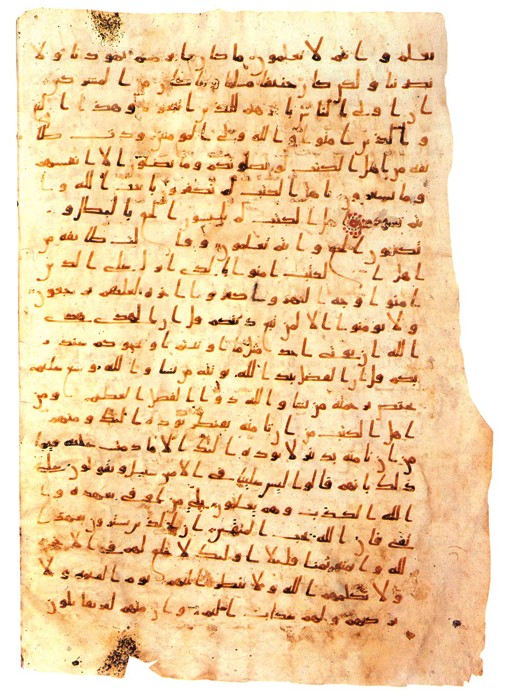 يعلم وانتم لا تعلمون ما كان ابرهيم يهوديا ولا
نصرنيا ولكن كان حنيفا مسلما وما كان من المشركين
ان اولى الناس بابرهيم للذين اتبعوه وهذا النبي
والذين امنوا والله ولي المومنين ودت طا
ئفة من اهل الكتب لو يضلونكم وما يضلون الا انفسهم
وما يشعرون ياهل الكتب لم تكفرون بايت الله وا
نتم تشهدون ياهل الكتب لم تلبسون الحق بالبطل و
تكتمون الحق وانتم تعلمون وقالت طائفة من
اهل الكتب امنوا بالذي انزل على الذين
امنوا وجه النهر واكفروا اخره لعلهم يرجعون
ولا تومنوا الا لمن تبع دينكم قل ان الهدى هدى
الله ان يوتى احد مثل ما اوتيتم او يحاجوكم عند ر
بكم قل ان الفضل بيد الله يوتيه من يشا والله وسع عليم
يختص برحمته من يشا والله ذو الفضل العظيم ومن
اهل الكتب من ان تامنه بقنطر يوده اليك ومنهم
من ان تامنه بدينر لا يوده اليك الا ما دمت عليه قيما
ذلك بانهم قالوا ليس علينا في الامين سبيل ويقولون على
الله الكذب وهم يعلمون بلى من اوفى بعهده وا
تقى فان الله يحب المتقين ان الذين يشترون بعهد ا
لله وايمنهم ثمنا قليلا اولئك لا خلق لهم في الاخرة
ولا يكلمهم الله ولا ينظر اليهم يوم القيمة ولا
يزكيهم ولهم عذاب اليم وان منهم لفريقا يلون